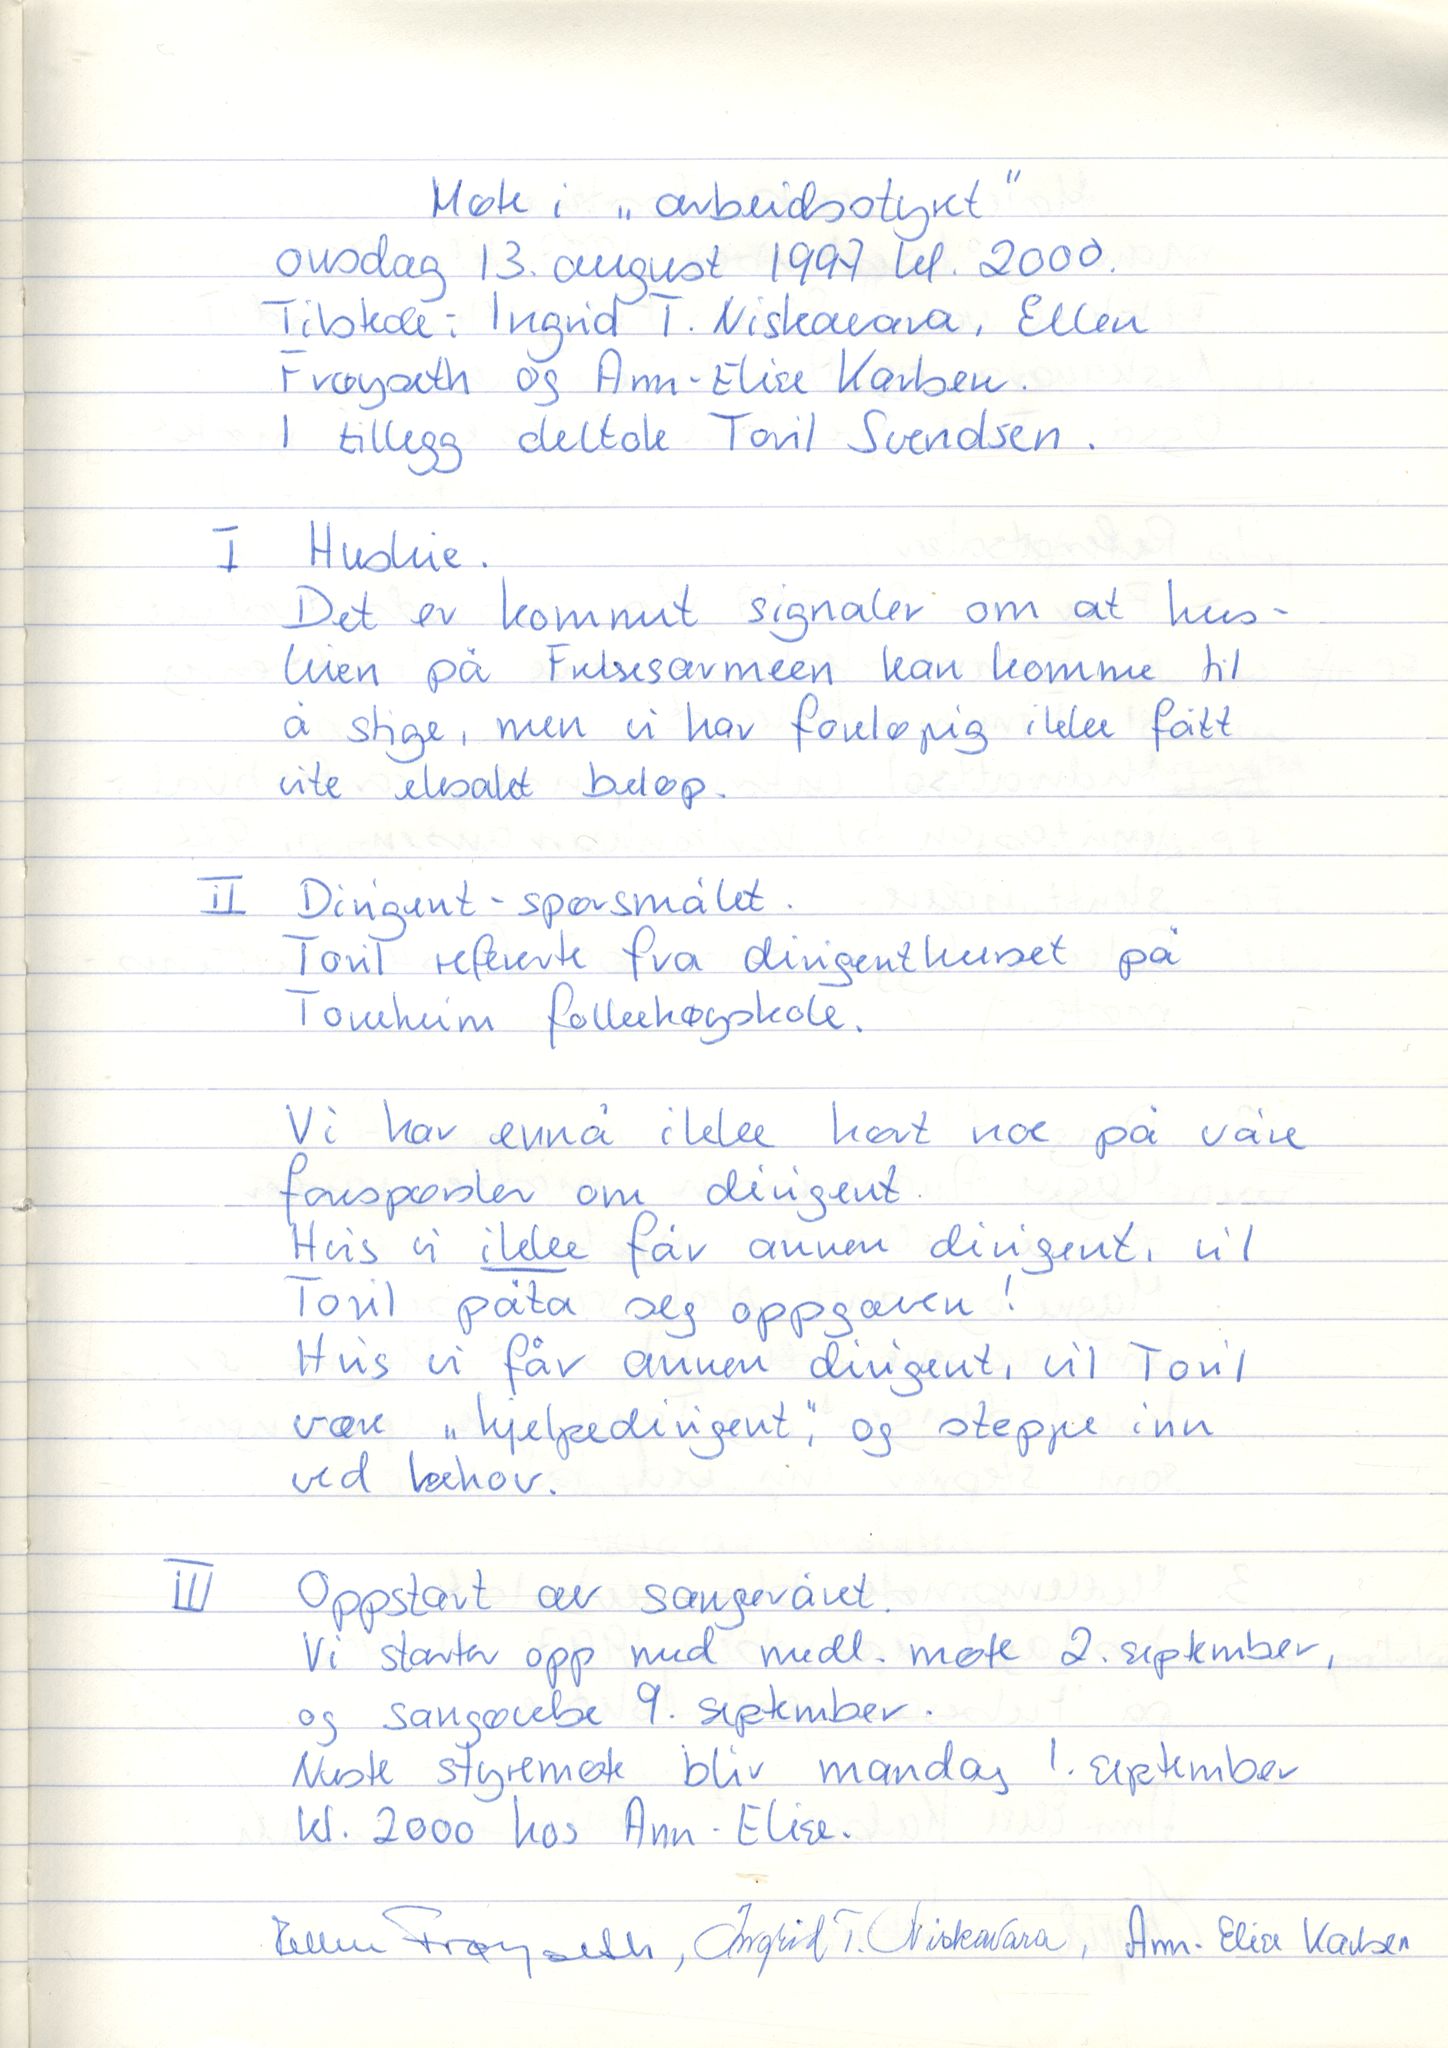 Møte i „arbeidsstyret"
onsdag 13. august 1997 kl. 2000.
Tilstede: Ingrid T. Niskavara, Ellen
Frøyseth og Ann-Elise Karlsen.
I tillegg deltok Toril Svendsen.
I Husleie.
Det er kommet signaler om at hus-
leien på Frelsesarmeen kan komme til
å stige, men vi har foreløpig ikke fått
vite eksakt beløp.
II Dirigent-spørsmålet.
Toril refererte fra dirigentkurset på
Toneheim folkehøgskole.
Vi har ennå ikke hørt noe på våre
forespørsler om dirigent.
Hvis vi ikke får annen dirigent, vil
Toril påta seg oppgaven!
Hvis vi får annen dirigent, vil Toril
være „hjelpedirigent", og steppe inn
ved behov.
III Oppstart av sangeråret.
Vi starter opp med medl. møte 2. september,
og sangøvelse 9. september.
Neste styremøte blir mandag 1. september
kl. 2000 hos Ann-Elise.
Ellen Frøyseth, Ingrid T. Niskavara, Ann-Elise Karlsen